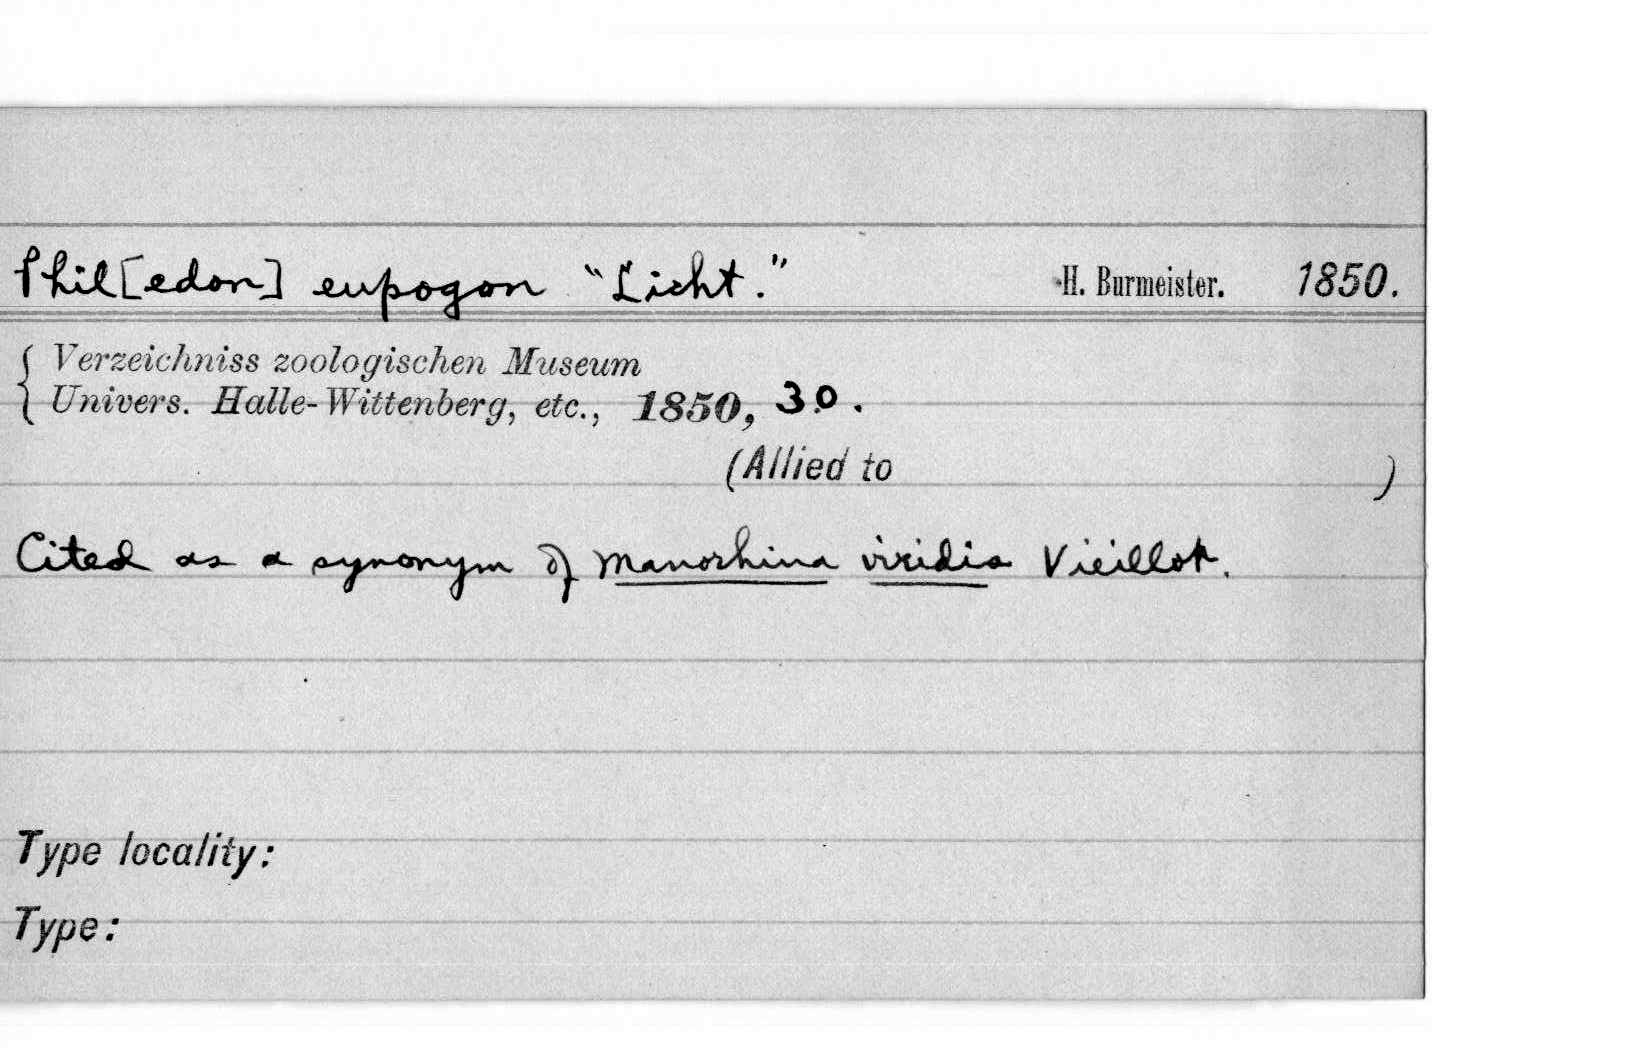 Phil[edon] eupogon "Licht." H. Burmeister. 1850.
{ Verzeichniss zoologischen Museum
{ Univers. Halle-Wittenberg, etc., 1850, 30.
(Allied to )
Cited as a synonym of Manorhina viridis Vieillot.
Type locality:
Type: